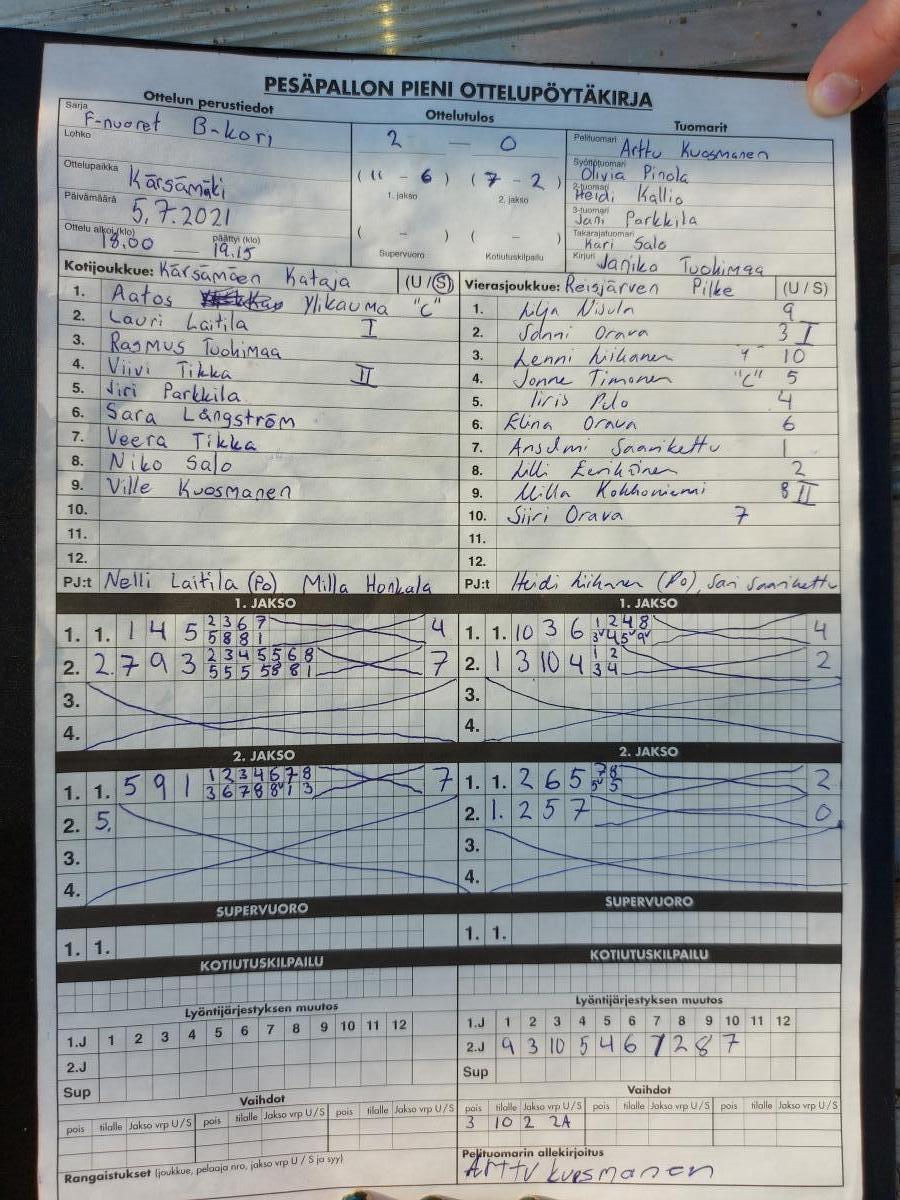 PESÄPALLON PIENI OTTELUPÖYTÄKIRJA
Ottelun perustiedot
Ottelutulos
Tuomarit
Sarja
F-nuoret B-kori
Lohko
Ottelupaikka
Kärsämäki
Päivämäärä
5.7.2021
Ottelu alkoi (klo) päättyi (klo)
18.00 — 19.15
2 — 0
( 11 - 6 ) ( 7 - 2 )
1. jakso 2. jakso
( - ) ( - )
Supervuoro Kotiutuskilpailu
Pelituomari
Arttu Kuosmanen
Syöttötuomari
Olivia Pinola
2-tuomari
Heidi Kallio
3-tuomari
Jani Parkkila
Takarajatuomari
Kari Salo
Kirjuri
Janika Tuohimaa
Kotijoukkue: Kärsämäen Kataja (U / S)
1. Aatos Ylikauma "C"
2. Lauri Laitila I
3. Rasmus Tuohimaa
4. Viivi Tikka II
5. Jiri Parkkila
6. Sara Långström
7. Veera Tikka
8. Niko Salo
9. Ville Kuosmanen
10.
11.
12.
PJ:t Nelli Laitila (Po) Milla Honkala
Vierasjoukkue: Reisjärven Pilke (U / S)
1. Lilja Nisula 9
2. Sanni Orava 3 I
3. Lenni Liikanen 10
4. Jonne Timonen "C" 5
5. Iiris Palo 4
6. Elina Orava 6
7. Anselmi Saarikettu 1
8. Lilli 2
9. Milla Kokkoniemi 8 II
10. Siiri Orava 7
11.
12.
PJ:t Heidi Liikanen (Po), Sari Saarikettu
1. JAKSO
1. 1. 1 4 5 2 3 6 7 4
5 8 8 1
2. 2. 7 9 3 2 3 4 5 5 6 8 7
5 5 5 5 8 8 1
3.
4.
1. JAKSO
1. 1. 10 3 6 1 2 4 8 4
3 4 5 9
2. 1 3 10 4 1 2 2
3 4
3.
4.
2. JAKSO
1. 1. 5 9 1 1 2 3 4 6 7 8 7
3 6 7 8 8 1 3
2. 5.
3.
4.
2. JAKSO
1. 1. 2 6 5 7 8 2
5 5
2. 1. 2 5 7 0
3.
4.
SUPERVUORO
1. 1.
SUPERVUORO
1. 1.
KOTIUTUSKILPAILU
KOTIUTUSKILPAILU
Lyöntijärjestyksen muutos
1.J 1 2 3 4 5 6 7 8 9 10 11 12
2.J
Sup
Lyöntijärjestyksen muutos
1.J 1 2 3 4 5 6 7 8 9 10 11 12
2.J 9 3 10 5 4 6 1 2 8 7
Sup
Vaihdot
pois tilalle Jakso vrp U / S pois tilalle Jakso vrp U / S pois tilalle Jakso vrp U / S
Vaihdot
pois tilalle Jakso vrp U / S pois tilalle Jakso vrp U / S pois tilalle Jakso vrp U / S
3 10 2 2A
Rangaistukset (joukkue, pelaaja nro, jakso vrp U / S ja syy)
Pelituomarin allekirjoitus
Arttu Kuosmanen